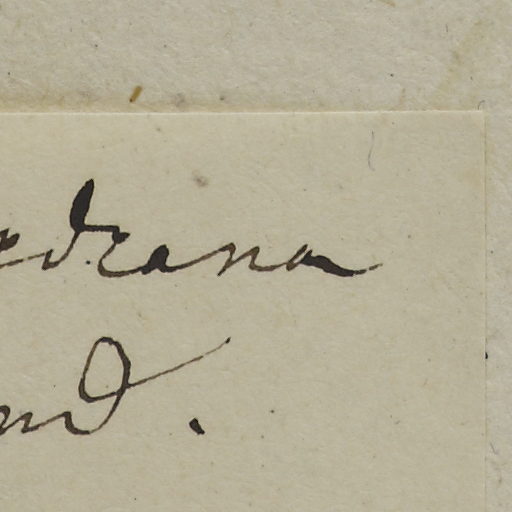 edrana
nd.